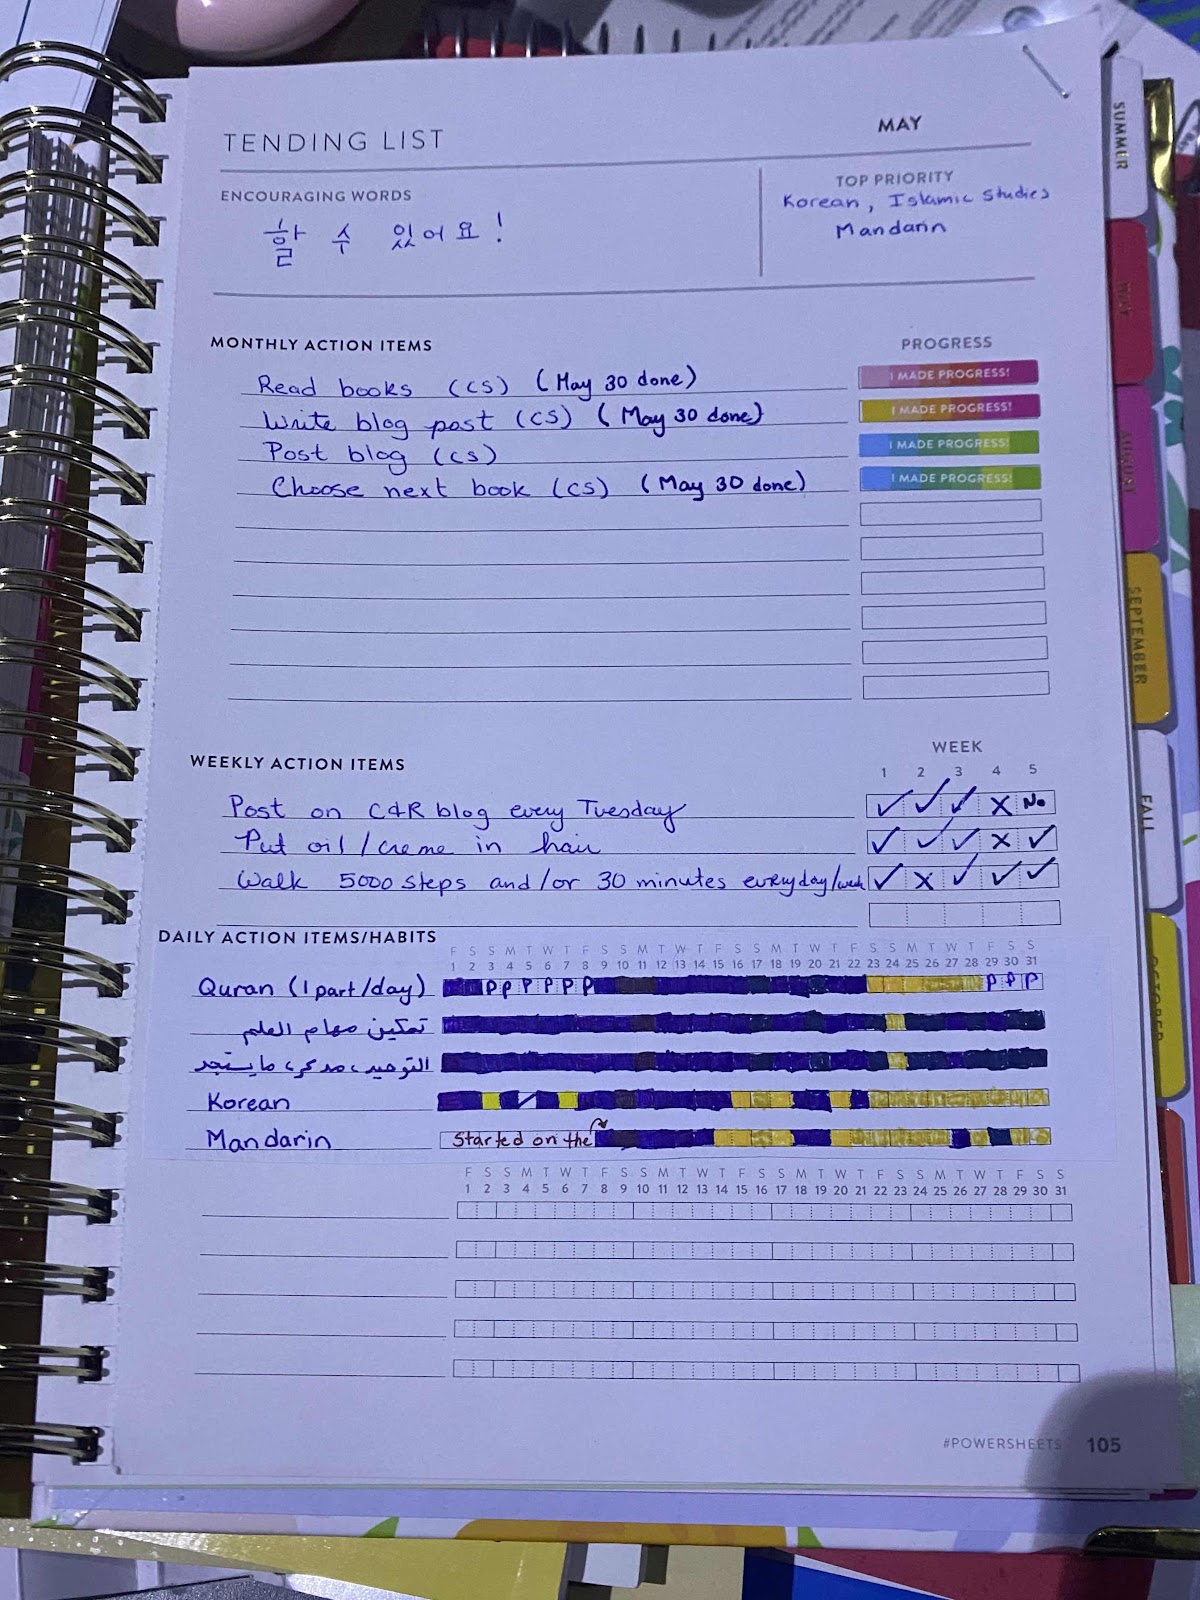 SUMMER
TENDING LIST
MAY
ENCOURAGING WORDS
할 수 있어요!
TOP PRIORITY
Korean, Islamic Studies
Mandarin
MONTHLY ACTION ITEMS
PROGRESS
Read books (CS) (May 30 done)
I MADE PROGRESS!
Write blog post (CS) (May 30 done)
I MADE PROGRESS!
Post blog (CS)
I MADE PROGRESS!
Choose next book (CS) (May 30 done)
I MADE PROGRESS!
AUGUST
SEPTEMBER
FALL
OCTOBER
WEEKLY ACTION ITEMS
WEEK
1 2 3 4 5
Post on C&R blog every Tuesday ✓ ✓ ✓ X No
Put oil/creme in hair ✓ ✓ ✓ X ✓
Walk 5000 steps and/or 30 minutes everyday/week ✓ X ✓ ✓ ✓
DAILY ACTION ITEMS/HABITS
F S S M T W T F S S M T W T F S S M T W T F S S M T W T F S S
1 2 3 4 5 6 7 8 9 10 11 12 13 14 15 16 17 18 19 20 21 22 23 24 25 26 27 28 29 30 31
Quran (1 part/day) P P P P P P P P P
تمكين مهام العلم
التوحيد، مدكر، ما يستجد
Korean
Mandarin Started on the
F S S M T W T F S S M T W T F S S M T W T F S S M T W T F S S
1 2 3 4 5 6 7 8 9 10 11 12 13 14 15 16 17 18 19 20 21 22 23 24 25 26 27 28 29 30 31
#POWERSHEETS 105